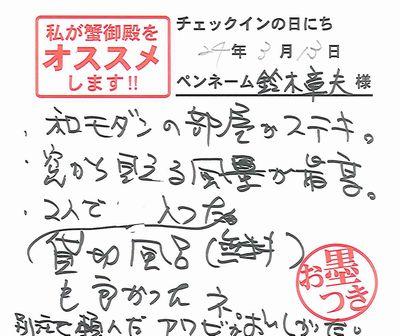 私が蟹御殿を
オススメ
します!!
チェックインの日にち
24年3月13日
ペンネーム 鈴木章夫 様
・和モダンの部屋がステキ。
・窓から見える風景が最高。
・2人で 入った
(貸切風呂(無料)
も良かったネ
別注で頼んだアワビがおいしかった。
お墨つき